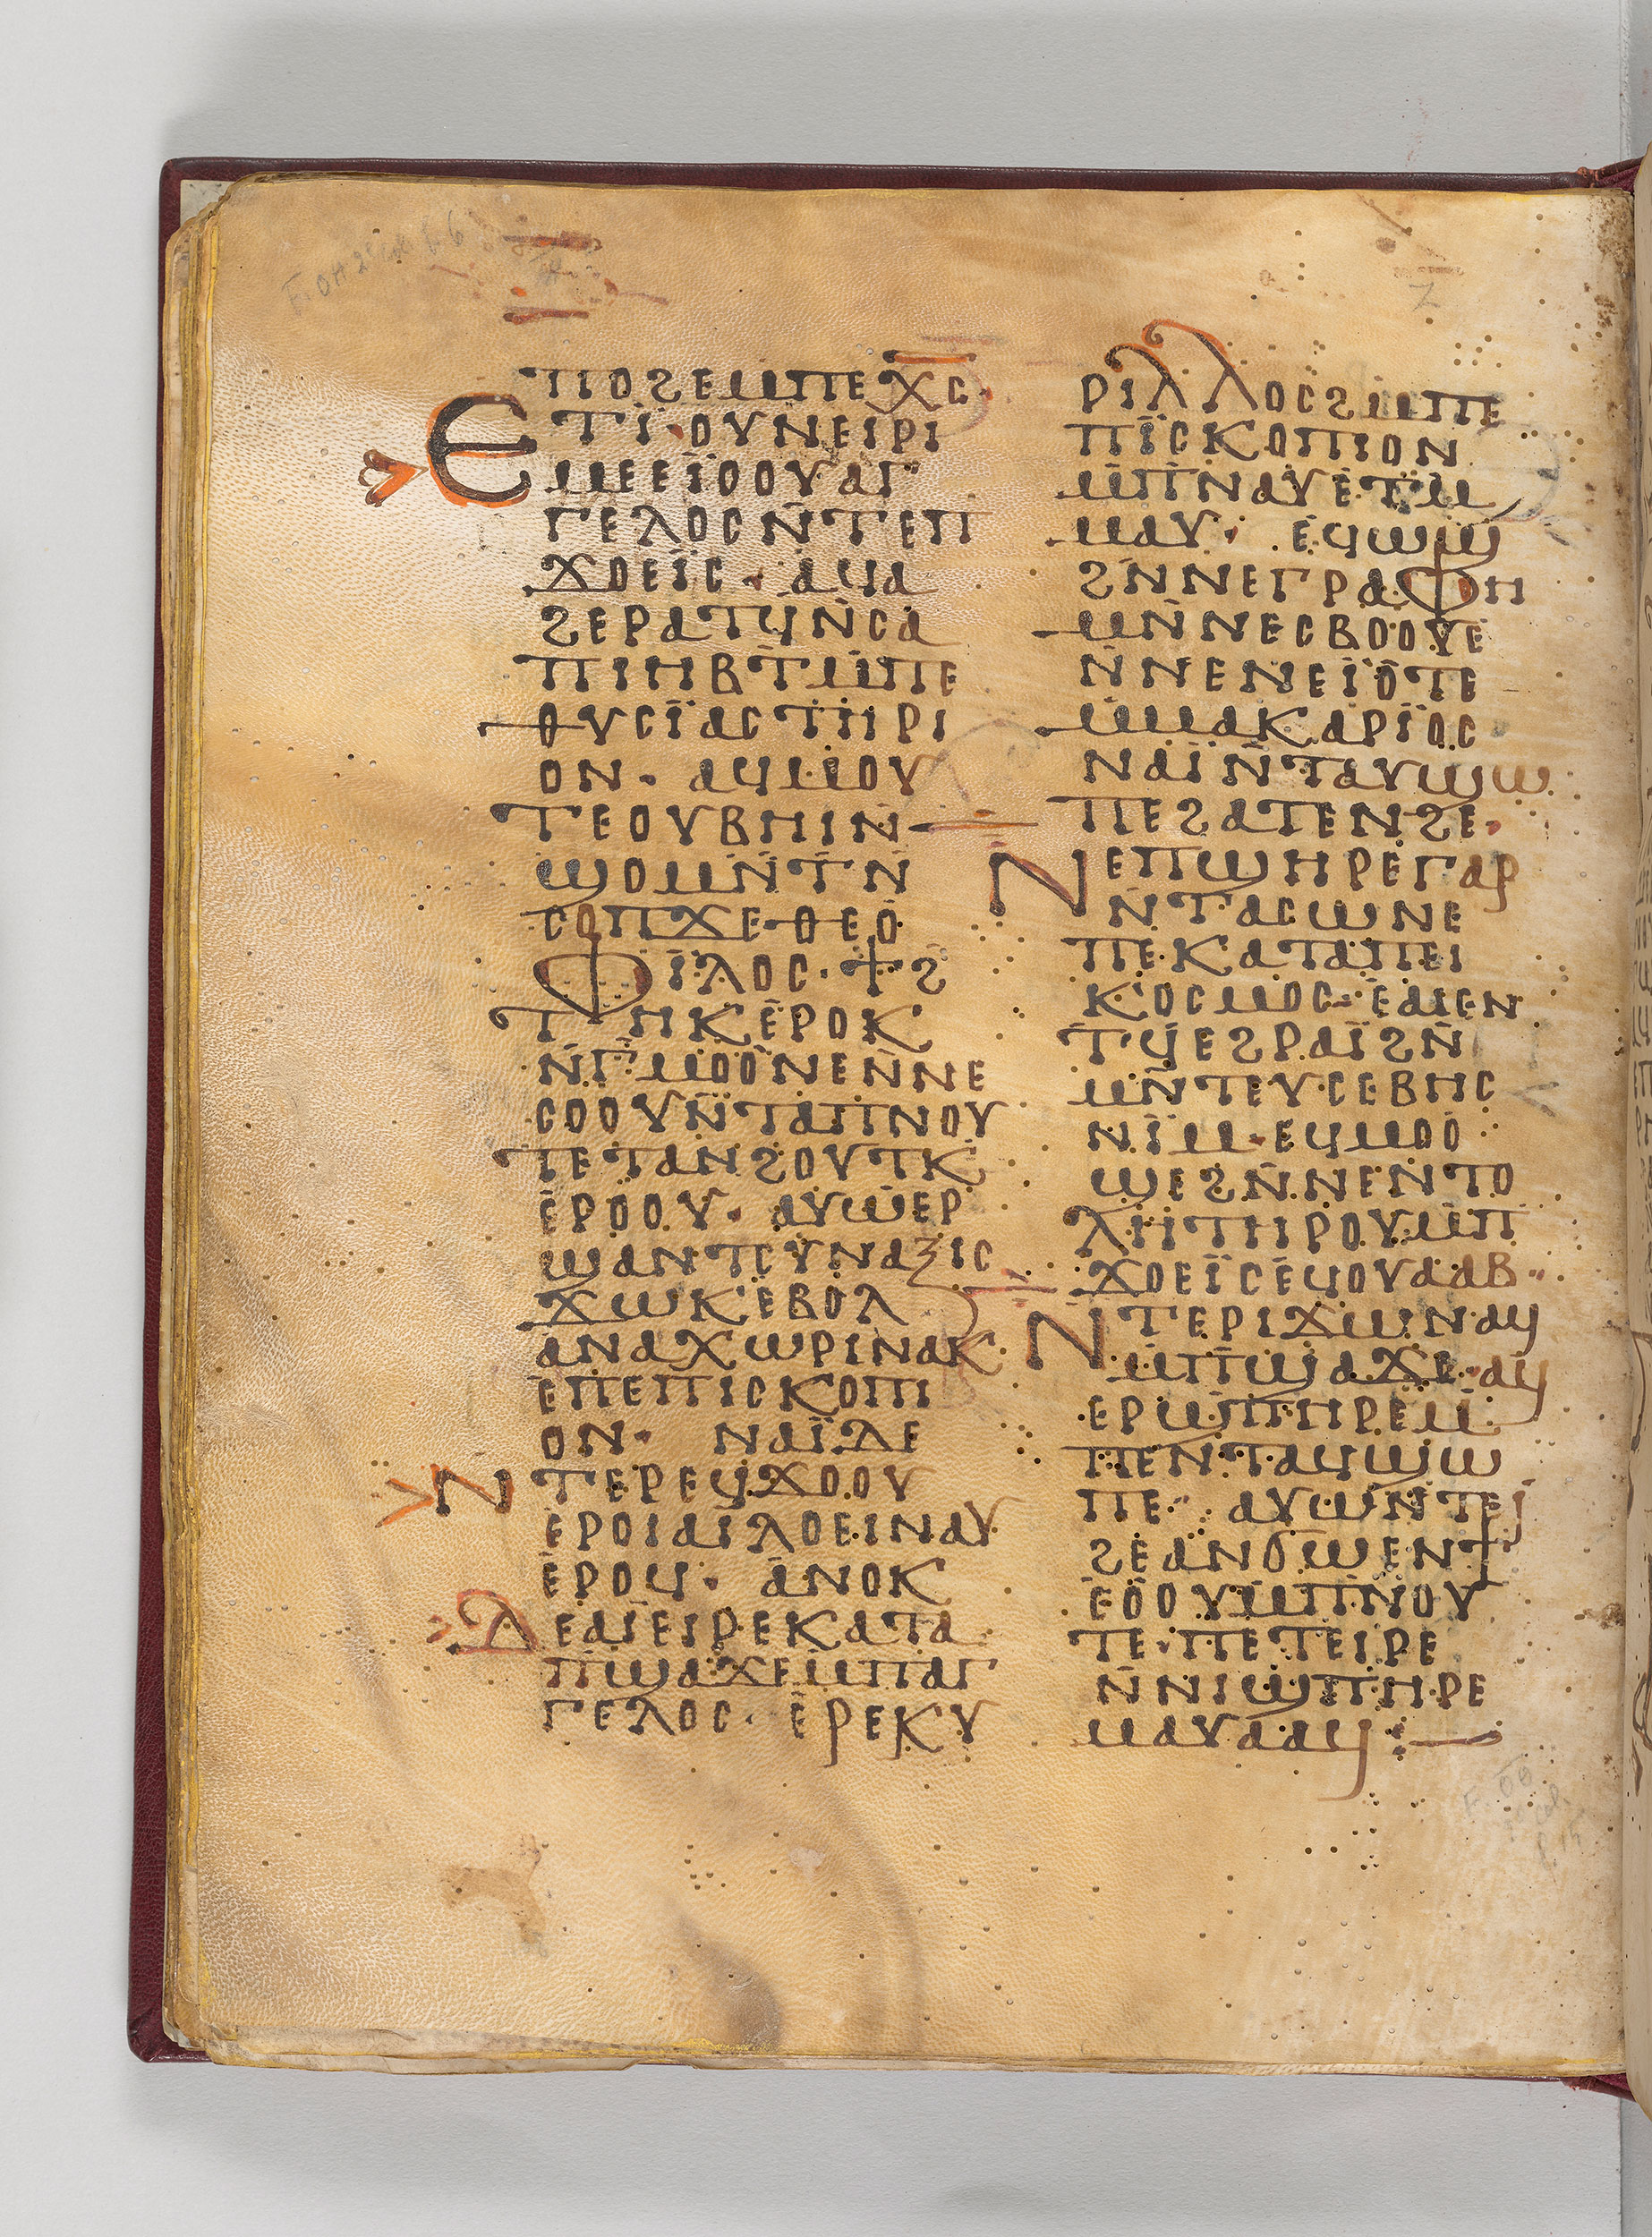 ⲡⲟϩⲉⲙⲡⲉⲭ̅ⲥ̅·
ⲉⲧⲓ·ⲟⲩⲛⲉⲓⲣⲓ
ⲙⲉⲉⲓ̈ⲟⲟⲩⲁⲅ
ⲅⲉⲗⲟⲥⲛ̄ⲧⲉⲡ
ϫⲟⲉⲓ̈ⲥ· ⲁϥⲁ
ϩⲉⲣⲁⲧϥⲛ̄ⲥⲁ
ⲡⲓⲏⲃⲧ̄ⲙ̄ⲡⲉ
ⲑⲩⲥⲓ̈ⲁⲥⲧⲏⲣⲓ
ⲟⲛ· ⲁϥⲙⲟⲩ
ⲧⲉⲟⲩⲃⲏⲓⲛ̄
ϣⲟⲙⲛ̄ⲧⲛ̄
ⲥⲟⲡϫⲉⲑⲉⲟ
ⲫⲓ̈ⲗⲟⲥ·ϯϩ
ⲧⲏⲕⲉ̇ⲣⲟⲕ
ⲛ̄ⲅ̄ⲙⲟⲟⲛⲉⲛ̄ⲛⲉ
ⲥⲟⲟⲩⲛ̄ⲧⲁⲡⲛⲟⲩ
ⲧⲉⲧⲁⲛϩⲟⲩⲧⲕ
ⲉ̇ⲣⲟⲟⲩ· ⲁⲩⲱⲉⲣ
ϣⲁⲛⲧⲥⲩⲛⲁⲝⲓⲥ
ϫⲱⲕⲉ̇ⲃⲟⲗ
ⲁⲛⲁⲭⲱⲣⲓⲛⲁⲕ
ⲉ̇ⲡⲉⲡⲓⲥⲕⲟⲡⲓ
ⲟⲛ· ⲛⲁⲓ̈ⲇⲉ
ⲛⲧⲉⲣⲉϥϫⲟⲟⲩ
ⲉ̇ⲣⲟⲓⲁⲓⲗⲟⲉⲓⲛⲁⲩ
ⲉ̇ⲣⲟϥ· ⲁ̇ⲛⲟⲕ
ⲇⲉⲁⲓ̈ⲉⲓⲣⲉⲕⲁⲧⲁ
ⲡϣⲁϫⲉⲙ̄ⲡⲁⲅ
ⲅⲉⲗⲟⲥ· ⲉ̇ⲣⲉⲕⲩ
ⲣⲓⲗⲗⲟⲥϩⲙ̄ⲡⲉ
ⲡⲓ̈ⲥⲕⲟⲡⲓⲟⲛ
ⲙ̄ⲡⲛⲁⲩⲉ̇ⲧⲙ̄
ⲙⲁⲩ· ⲉϥⲱϣ
ϩⲛ̄ⲛⲉⲅⲣⲁⲫⲏ
ⲙⲛ̄ⲛⲉⲥⲃⲟⲟⲩⲉ
ⲛ̄ⲛⲉⲛⲉⲓ̈ⲟⲧⲉ
ⲙ̄ⲙⲁⲕⲁⲣⲓ̈ⲟⲥ
ⲛⲁⲓ̈ⲛ̄ⲧⲁⲩϣⲱ
ⲡⲉϩⲁⲧⲉⲛϩⲉ·
ⲛⲉⲡϣⲏⲣⲉⲅⲁⲣ
ⲛ̄ⲧⲁⲥⲱⲛⲉ
ⲡⲉⲕⲁⲧⲁⲡⲉⲓ
ⲕⲟⲥⲙⲟⲥ· ⲉ̇ⲁⲓⲉⲛ
ⲧϥⲉϩⲣⲁⲓ̈ϩⲛ̄
ⲙⲛ̄ⲧⲉⲩⲥⲉⲃⲏⲥ
ⲛⲓⲙ· ⲉϥⲙⲟⲟ
ϣⲉϩⲛ̄ⲛⲉⲛⲧⲟ
ⲗⲏⲧⲏⲣⲟⲩⲙ̄ⲡ
ϫⲟⲉⲓ̈ⲥⲉϥⲟⲩⲁⲁⲃ·
ⲛⲧⲉⲣⲓϫⲱⲛⲁϥ
ⲙ̄ⲡϣⲁϫⲉ·ⲁϥ
ⲉⲣϣⲡⲏⲣⲉⲙ̄
ⲡⲉⲛⲧⲁϥϣⲱ
ⲡⲉ· ⲁⲩⲱⲛ̄ⲧⲉⲓ
ϩⲉⲁⲛϭⲱⲉⲛϯ
ⲉ̇ⲟⲟⲩⲙ̄ⲡⲛⲟⲩ
ⲧⲉ·ⲡⲉⲧⲉⲓⲣⲉ
ⲛ̄ⲛⲓϣⲡⲏⲣⲉ
ⲙⲁⲩⲁⲁϥ:—